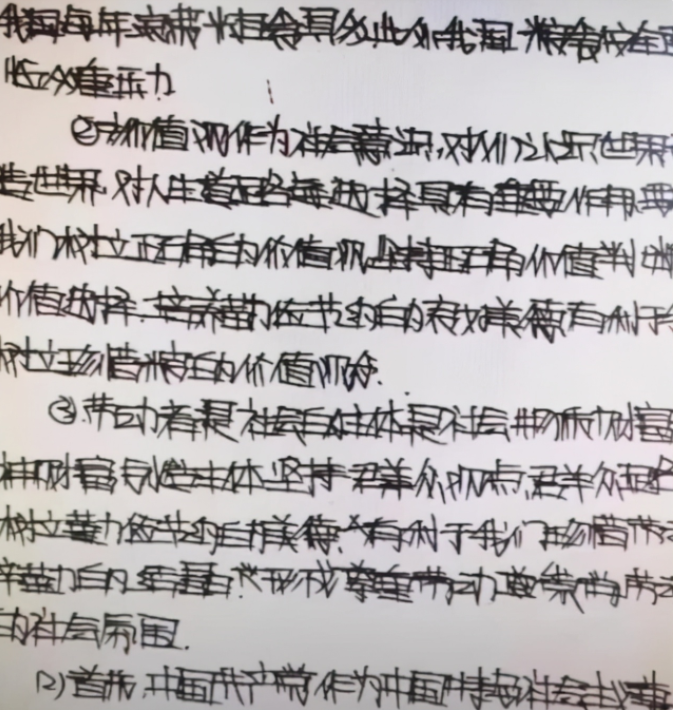 我国每年浪费粮食具多,此外我国粮食安全面
临双重压力
②价值观作为社会意识,对人们认识世界
造世界,对人生道路的选择具有重要作用,要
我们树立正确的价值观,坚持正确价值判断
价值选择.培养勤俭节约的良好美德有利于
树立珍惜粮食的价值观念.
③劳动者是社会的主体是社会物质财富
神财富创造主体.坚持群众观点,群众路
树立勤俭节约的美德,有利于我们珍惜劳动
辛勤的结晶,形成尊重劳动 崇尚劳动
的社会氛围.
(2)首先,中国共产党作为中国特色社会主义事